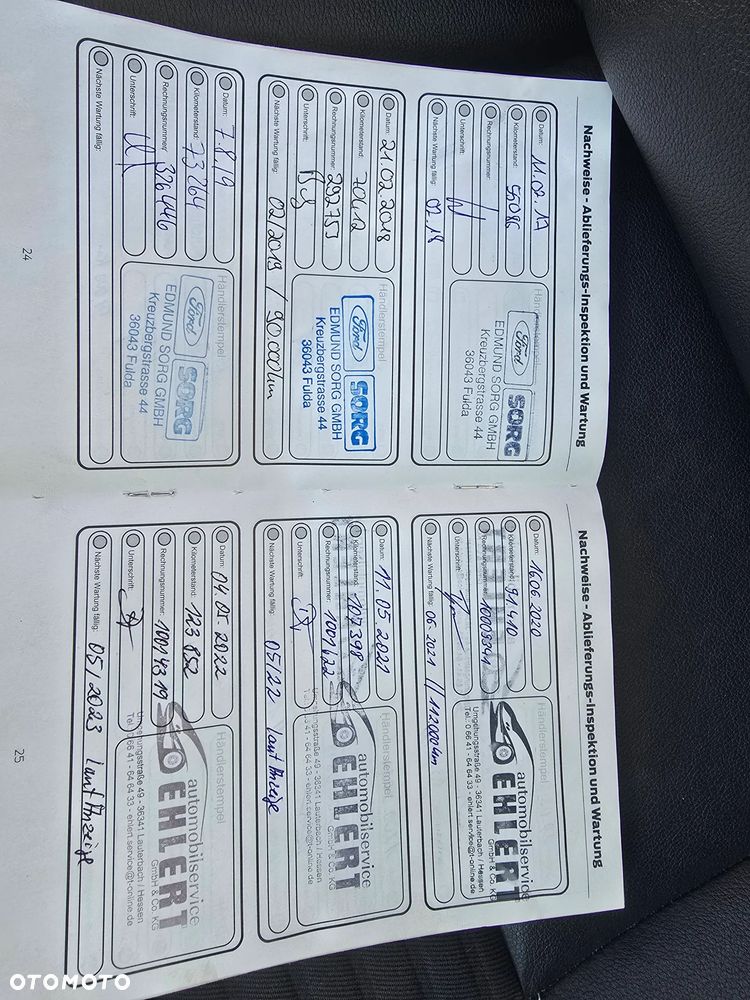 Nachweise - Ablieferungs-Inspektion und Wartung
Datum: 11.02.17
Kilometerstand: 55086
Rechnungsnummer:
Unterschrift:
Nächste Wartung fällig: 02.18
Händlerstempel
Ford SORG
EDMUND SORG GMBH
Kreuzbergstrasse 44
36043 Fulda
Datum: 21.02.2018
Kilometerstand: 70412
Rechnungsnummer: 292753
Unterschrift:
Nächste Wartung fällig: 02/2019 / 90.000km
Händlerstempel
Ford SORG
EDMUND SORG GMBH
Kreuzbergstrasse 44
36043 Fulda
Datum: 7.8.19
Kilometerstand: 73264
Rechnungsnummer: 326446
Unterschrift:
Nächste Wartung fällig:
Händlerstempel
Ford SORG
EDMUND SORG GMBH
Kreuzbergstrasse 44
36043 Fulda
24
Nachweise - Ablieferungs-Inspektion und Wartung
Datum: 16.06.2020
Kilometerstand: 91.410
Rechnungsnummer:
Unterschrift:
Nächste Wartung fällig: 06.2021 // 112000km
Händlerstempel
automobilservice
EHLERT
GmbH & Co. KG
Umgehungsstraße 49 - 36341 Lauterbach / Hessen
Tel.: 0 66 41 - 64 64 33 - ehlert.service@t-online.de
Datum: 11.05.2021
Kilometerstand: 107398
Rechnungsnummer:
Unterschrift:
Nächste Wartung fällig: 05/22 laut Anzeige
Händlerstempel
automobilservice
EHLERT
GmbH & Co. KG
straße 49 - 36341 Lauterbach / Hessen
41 - 64 64 33 - ehlert.service@t-online.de
Datum: 04.05.2022
Kilometerstand: 123852
Rechnungsnummer: 10014319
Unterschrift:
Nächste Wartung fällig: 05/2023 laut Anzeige
Händlerstempel
automobilservice
EHLERT
GmbH & Co. KG
Umgehungsstraße 49 - 36341 Lauterbach / Hessen
Tel.: 0 66 41 - 64 64 33 - ehlert.service@t-online.de
25
OTOMOTO